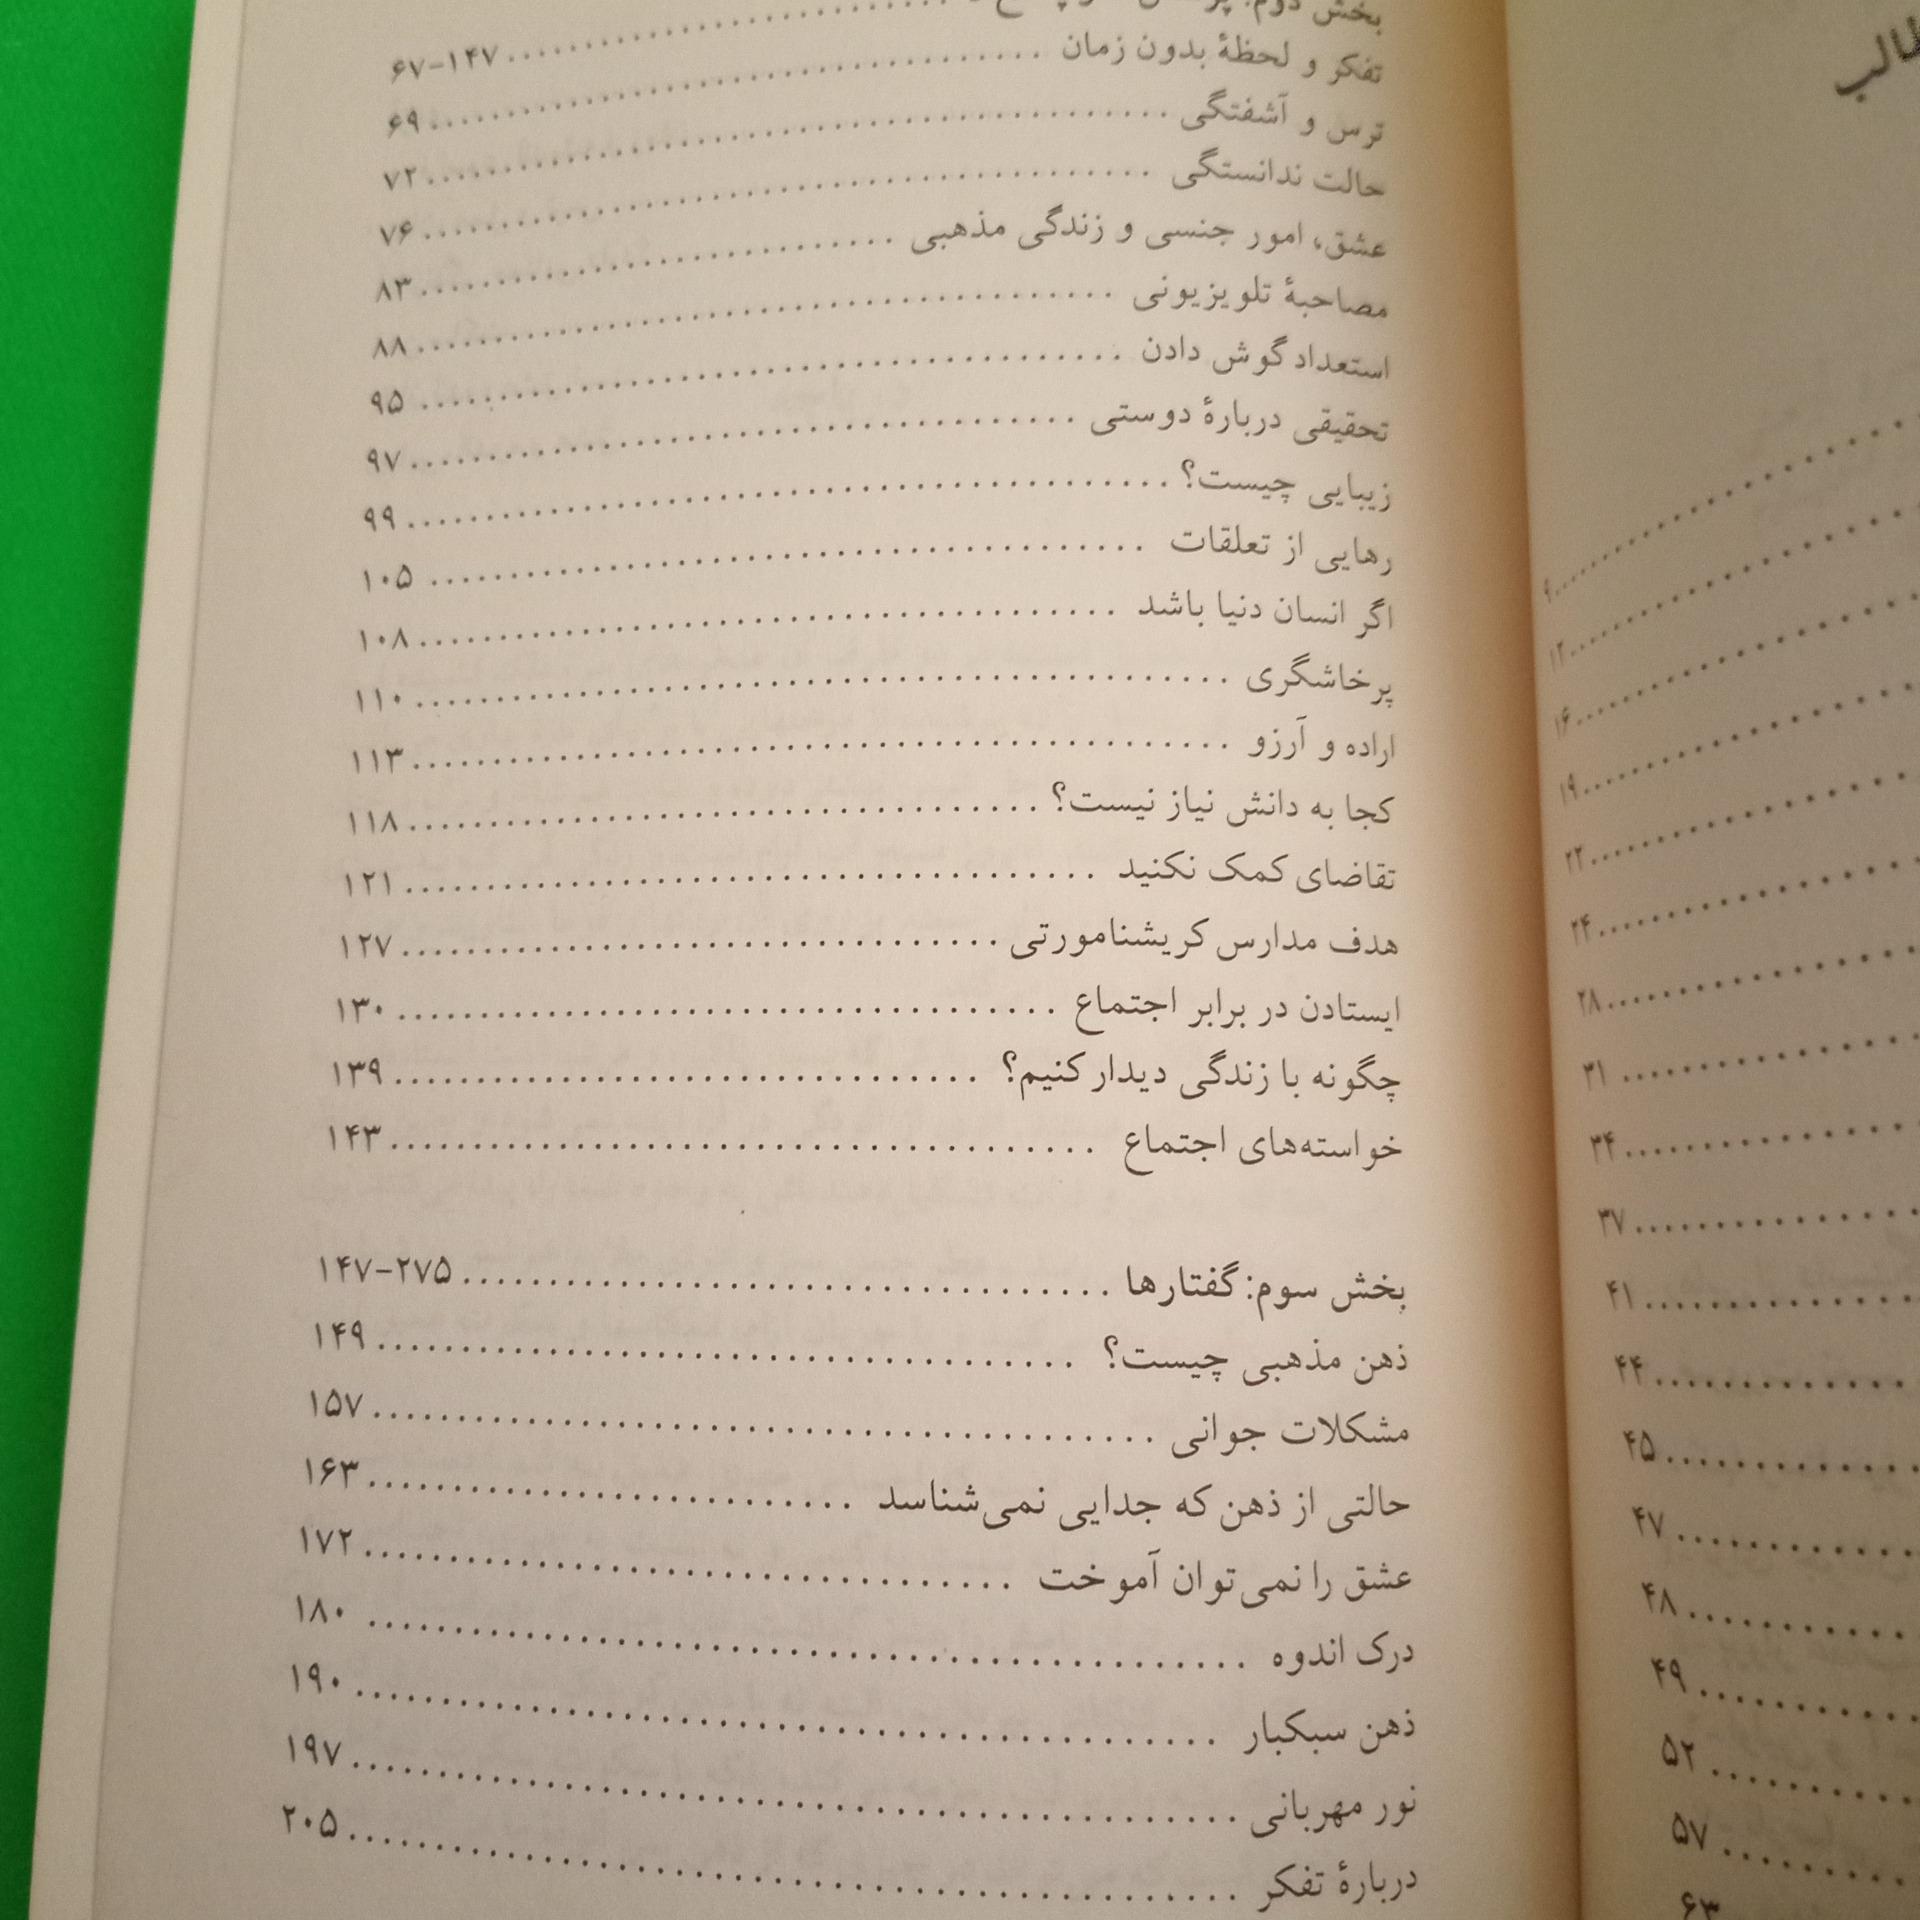 طالب
۹
۱۲
۱۶
۱۹
۲۲
۲۴
۲۸
۳۱
۳۴
۳۷
۴۱
۴۴
۴۵
۴۷
۴۸
۴۹
۵۲
۵۷
۶۳
بخش دوم: ۶۷–۱۴۷
تفکر و لحظهٔ بدون زمان ۶۹
ترس و آشفتگی ۷۲
حالت ندانستگی ۷۶
عشق، امور جنسی و زندگی مذهبی ۸۳
مصاحبهٔ تلویزیونی ۸۸
استعداد گوش دادن ۹۵
تحقیقی دربارهٔ دوستی ۹۷
زیبایی چیست؟ ۹۹
رهایی از تعلقات ۱۰۵
اگر انسان دنیا باشد ۱۰۸
پرخاشگری ۱۱۰
اراده و آرزو ۱۱۳
کجا به دانش نیاز نیست؟ ۱۱۸
تقاضای کمک نکنید ۱۲۱
هدف مدارس کریشنامورتی ۱۲۷
ایستادن در برابر اجتماع ۱۳۰
چگونه با زندگی دیدار کنیم؟ ۱۳۹
خواسته‌های اجتماع ۱۴۳
بخش سوم: گفتارها ۱۴۷–۲۷۵
ذهن مذهبی چیست؟ ۱۴۹
مشکلات جوانی ۱۵۷
حالتی از ذهن که جدایی نمی‌شناسد ۱۶۳
عشق را نمی‌توان آموخت ۱۷۲
درک اندوه ۱۸۰
ذهن سبکبار ۱۹۰
نور مهربانی ۱۹۷
دربارهٔ تفکر ۲۰۵